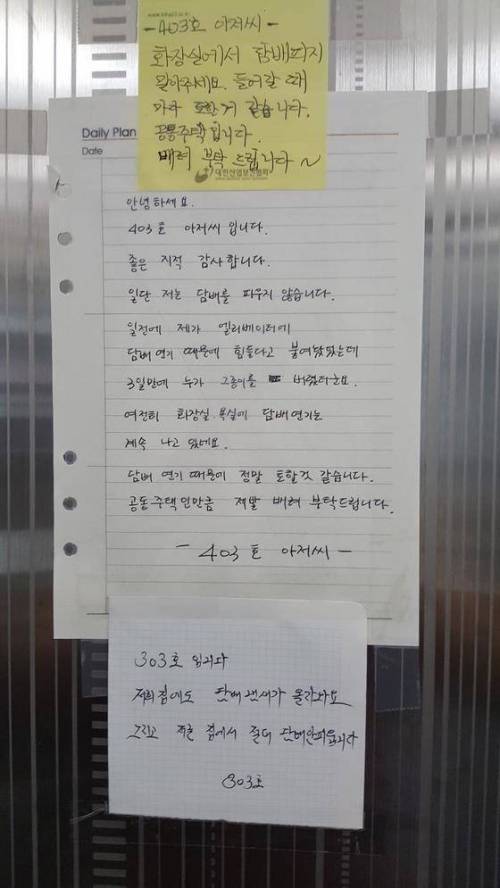 -403호 아저씨-
화장실에서 담배피지
말아주세요. 들어갈 때
마다 토할거 같습니다.
공동주택입니다.
배려 부탁 드립니다~
대한산업보건협회
Daily Plan
Date
안녕하세요.
403호 아저씨 입니다.
좋은 지적 감사합니다.
일단 저는 담배를 피우지 않습니다.
일전에 제가 엘리베이터에
담배 연기 때문에 힘들다고 붙여놨었는데
3일만에 누가 그종이를 버렸더라고요.
여전히 화장실.욕실에 담배연기는
계속 나고 있네요.
담배 연기 때문에 정말 토할것 같습니다.
공동주택인만큼 제발 배려 부탁드립니다.
- 403호 아저씨 -
303호 입니다
저희집에도 담배 냄새가 올라와요
그리고 저흰 집에서 절대 담배안피웁니다
303호